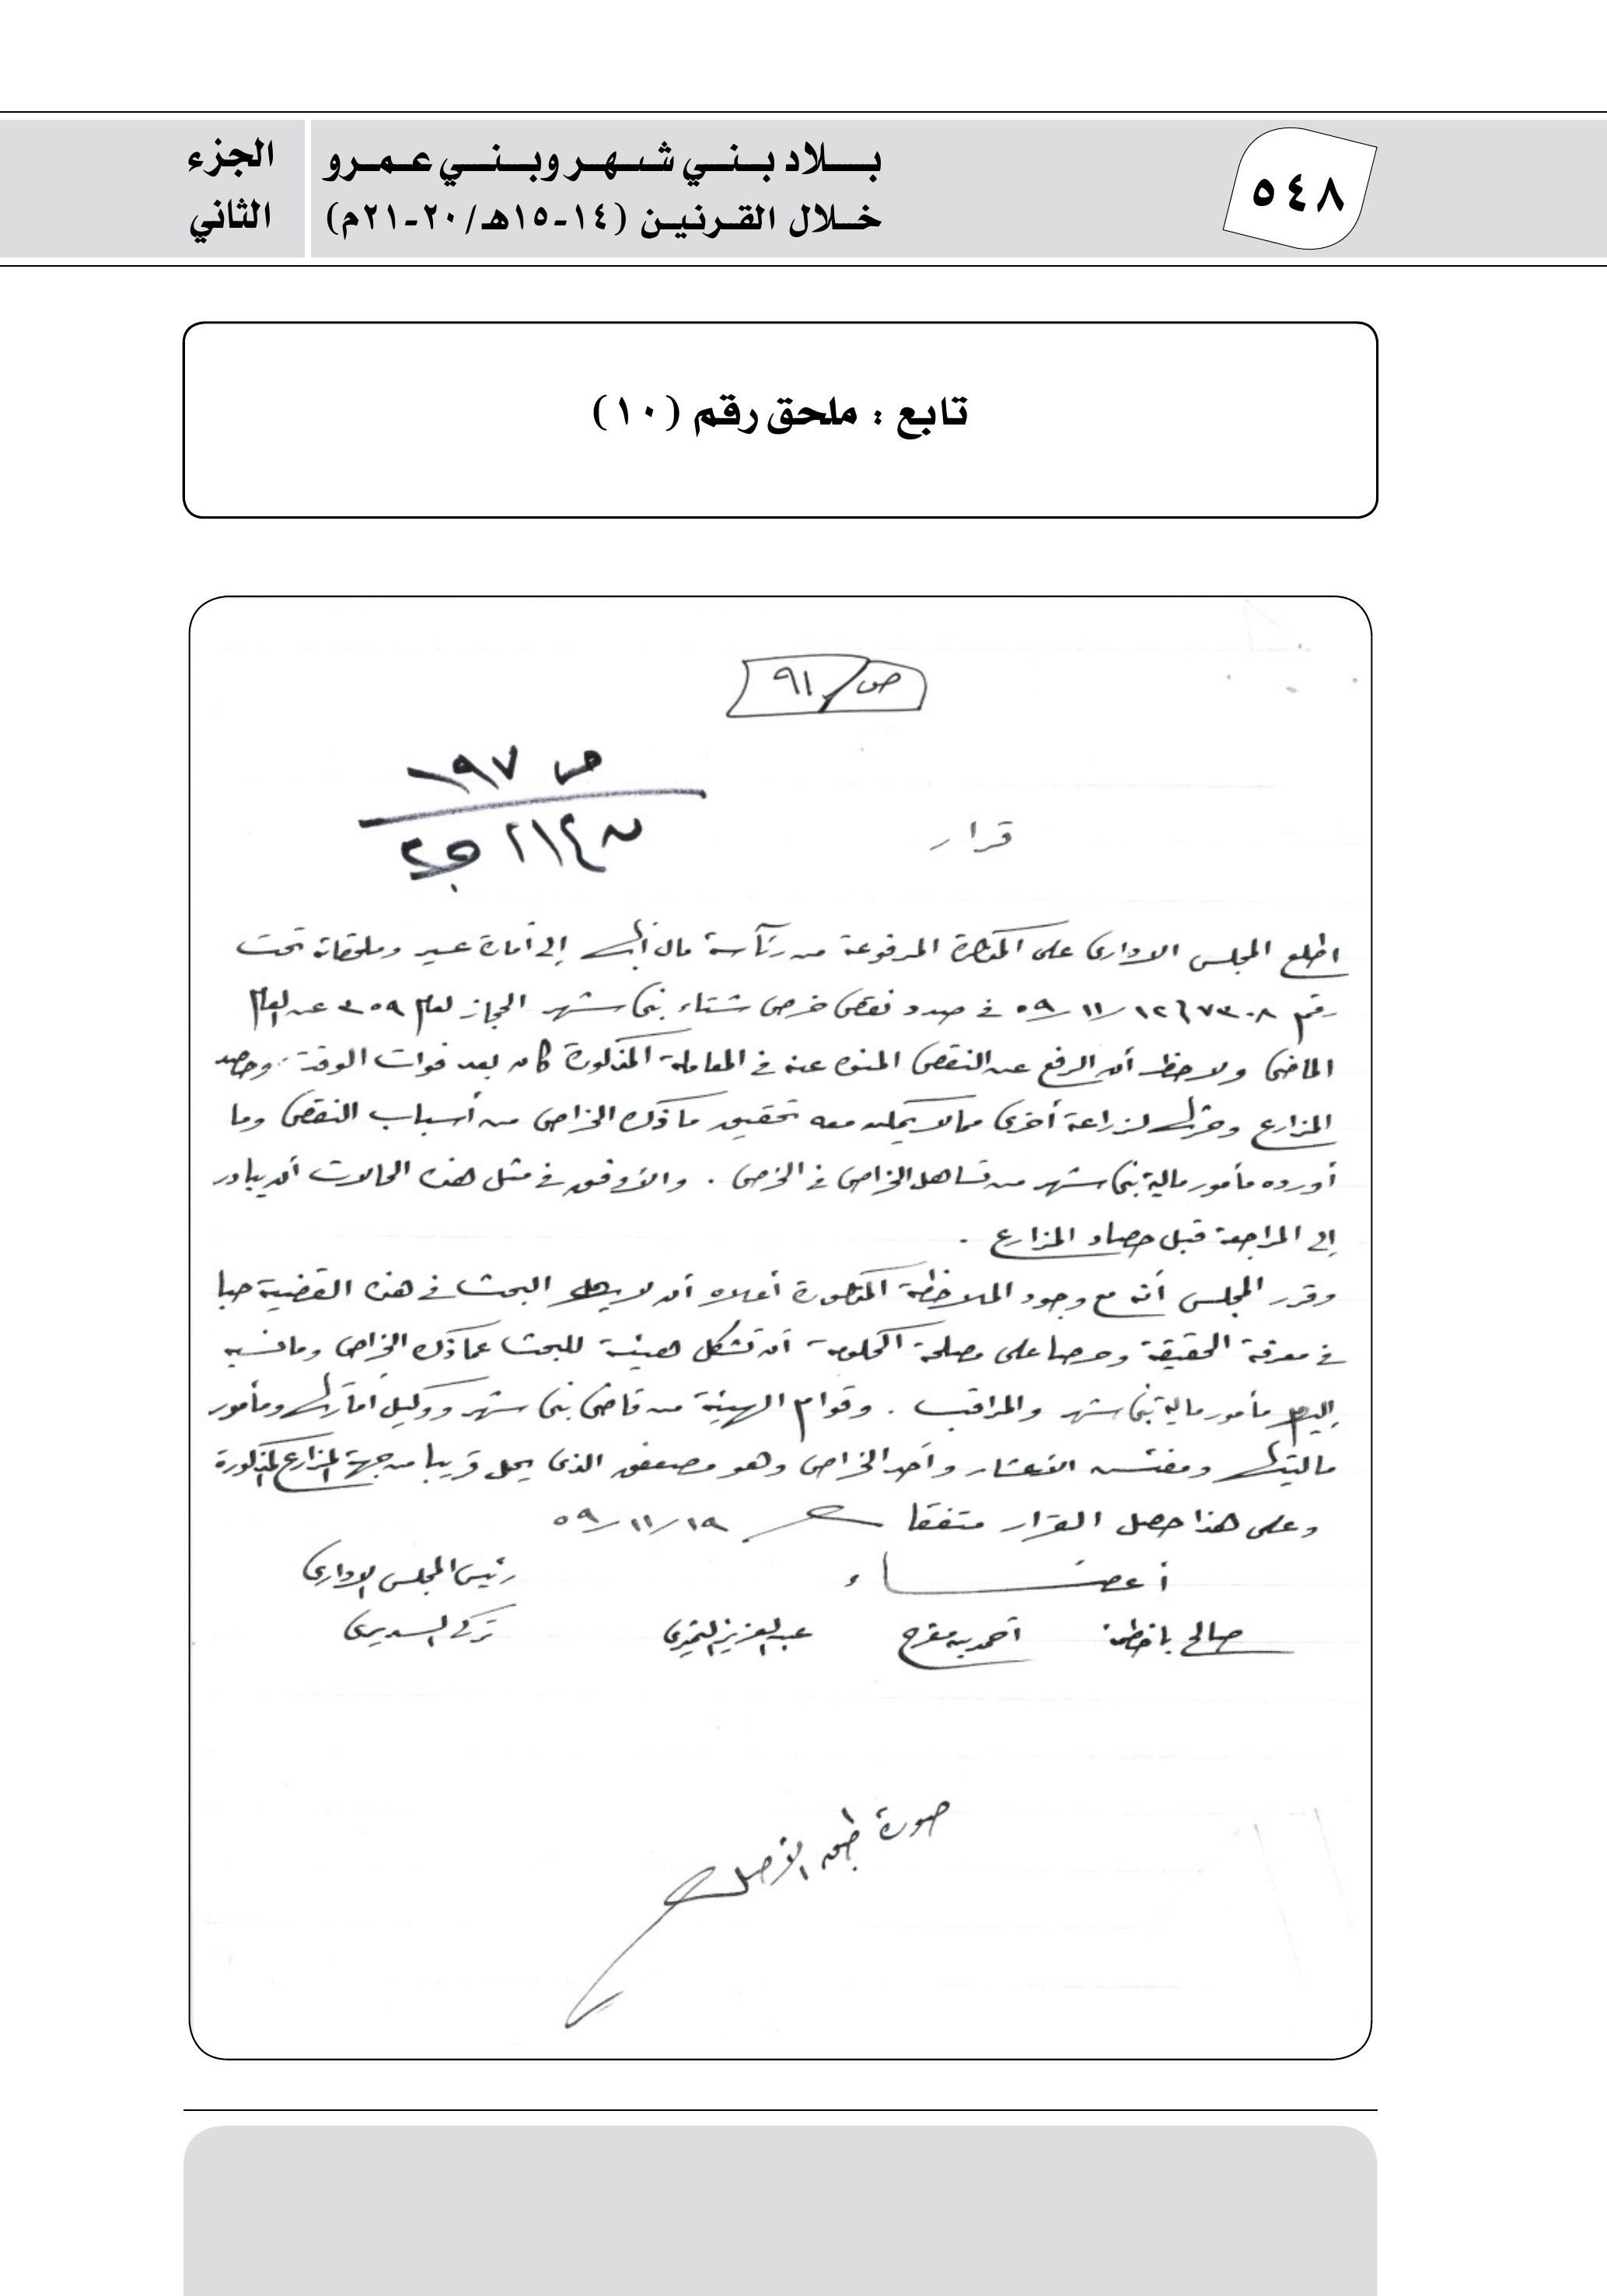 ٥٤٨
بلاد بني شهر وبني عمرو
خلال القرنين (١٤-١٥هـ/٢٠-٢١م)
الجزء
الثاني
تابع : ملحق رقم (١٠)
ص/٩١
ص ١٩٧
قرار
اطلع المجلس الادارى على المذكرة المرفوعة من رئآسة مال أبها إلى أمارة عسير وملحقاته تحت
رقم ٧٣٠٨ ١٢/١١/٥٩ في صدد نقص خرص شتاء بنى شهر الحجاز لعام ٣٥٩ عن العام
الماضى ولاحظ أن الرفع عن النقص المنوه عنه في المعاملة المذكورة كان بعد فوات الوقت وحصد
المزارع وحرثها لزراعة أخرى مما لا يمكن معه تحقيق ما ذكره الخراص من أسباب النقص وما
أورده مأمور مالية بنى شهر من تساهل الخراص في الخرص . والأوفق في مثل هذه الحالات أن يبادر
إلى المراجعة قبل حصاد المزارع .
وقرر المجلس أنه مع وجود الملاحظة المذكورة أعلاه أن لا يهمل البحث في هذه القضية حبا
في معرفة الحقيقة وحرصا على مصلحة الحكومة أن تشكل هيئة للبحث عما ذكره الخراص وما نسبه
إليهم مأمور مالية بنى شهر والمراقب . وقوام الهيئة من قاضى بنى شهر ووكيل امارتها ومأمور
ماليتها ومفتش الأعشار وأحد الخراص وهو الذى من جهة المزارع المذكورة
وعلى هذا حصل القرار متفقا ١٩/١١/٥٩
أعضاء
رئيس المجلس الادارى
صالح باخطمة احمد بن مفرح عبد العزيز
تركي السديرى
صورة طبق الأصل